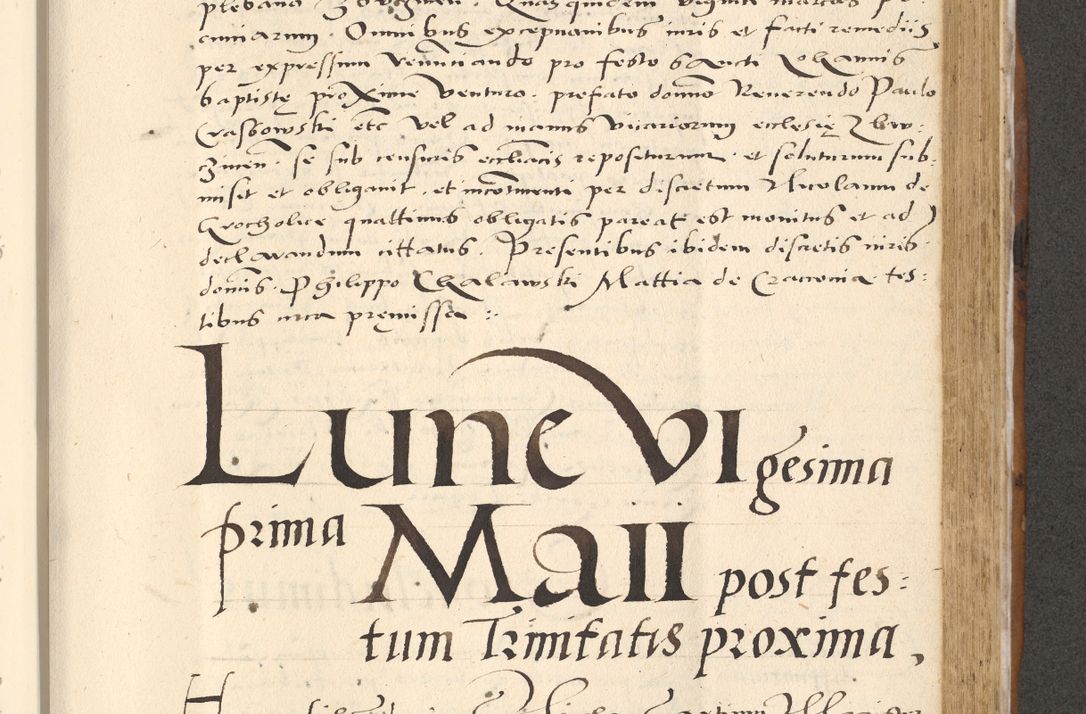 plebano
cuniarum. Omnibus exceptionibus iuris et facti remediis
per expressum renunciando pro festo sancti Iohannis
baptistę proxime venturo. prefato domino Reverendo Paulo
Crassowski etc vel ad manus vicariorum ecclesię
se sub censuris ecclīacis repositurum. et soluturum sub-
misit et obligavit. et incotinenti per discretum Nicolaum de
Grocholice quattinus obligatis pareat est monitus et ad
declarandum cittatus. Presentibus ibidem discretis viris
domīs. Philippo Chalawski Mattia de Cracovia. tes:
tibus circa premissa :.
Lune VIgesima
prima Maii post fes:
tum Trinitatis proxima,